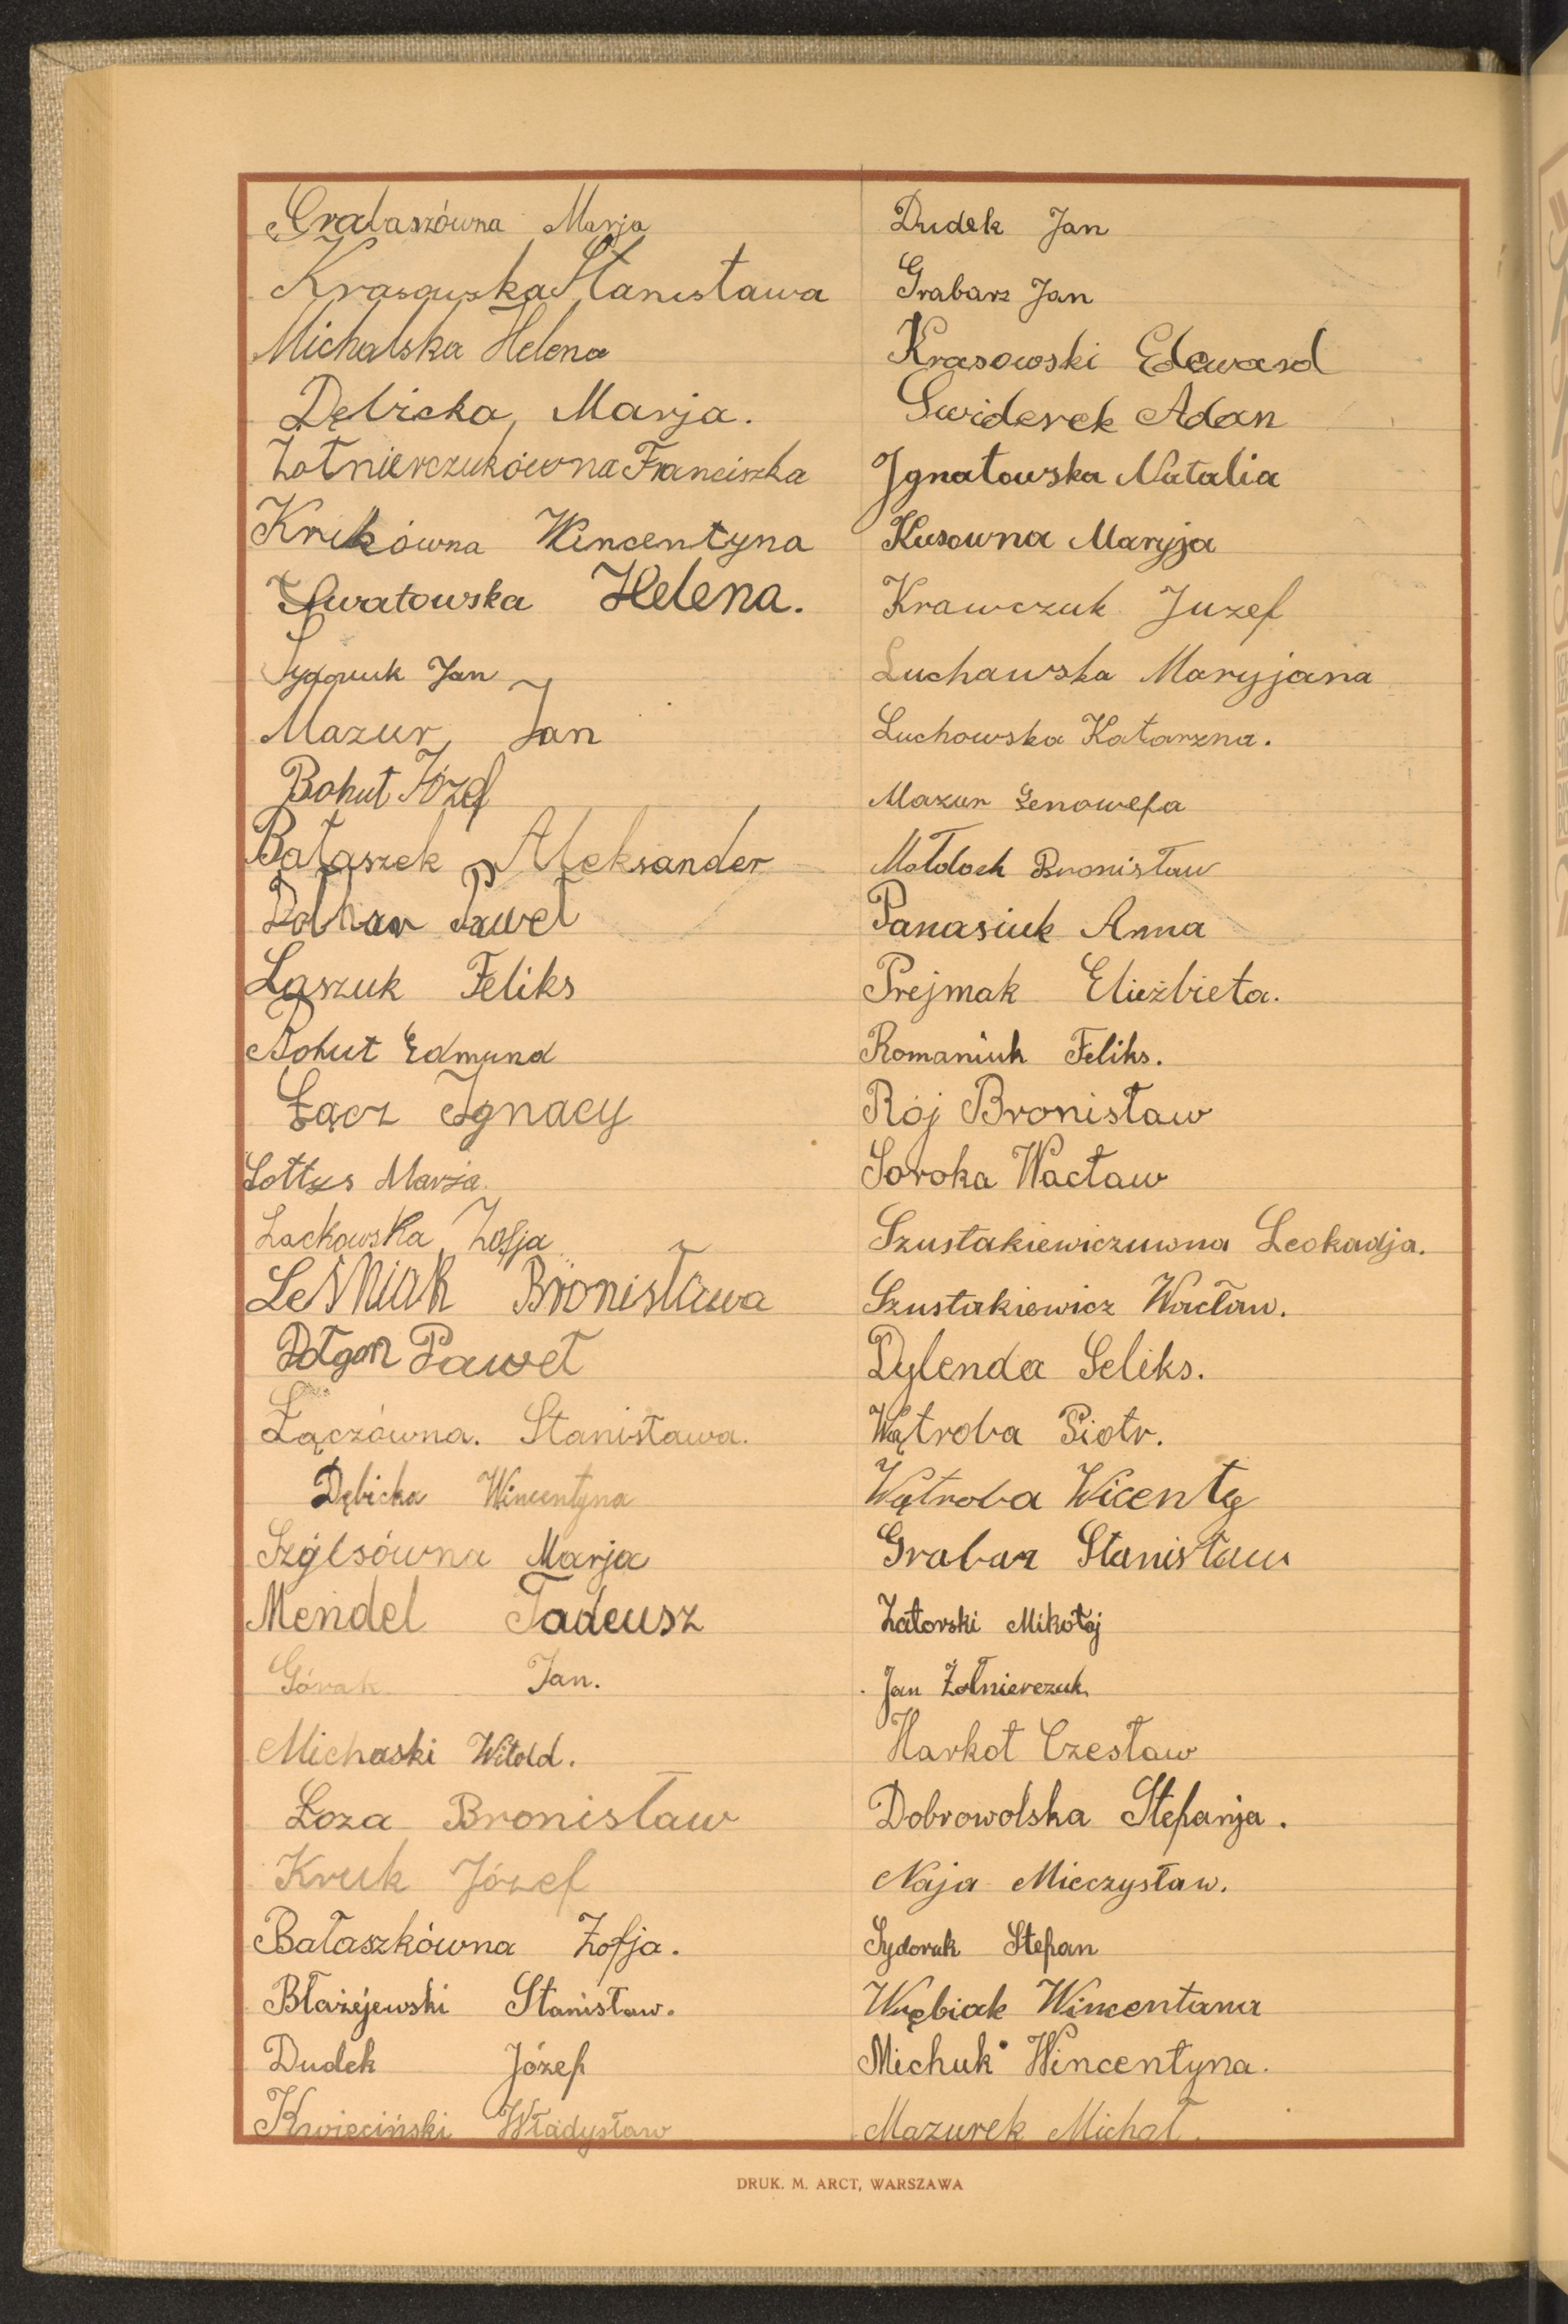 Grabaszówna Marja
Krasowska Stanisława
Michalska Helena
Dębicka, Marja.
Żołnierczukówna Franciszka
Krukówna Wincentyna
Helena.
Jan
Mazur, Jan
Bohut Józef
Bałaszek Aleksander
Paweł
Laszuk Feliks
Bohut Edmund
Łącz Ignacy
Sołtys Marja.
Lackowska Zofja
Leśniak Bronisława
Paweł
Łączówna. Stanisława.
Dębicka Wincentyna
Marja
Mendel Tadeusz
Górak Jan.
Michaski Witold.
Łoza Bronisław
Kruk Józef
Bałaszkówna Zofja.
Błażejewski Stanisław.
Dudek Józef
Kwieciński Władysław
Dudek Jan
Grabarz Jan
Krasowski Edward
Swiderek Adan
Ignatowska Natalia
Kusowna Maryja
Krawczuk Juzef
Luchawska Maryjana
Luchowska Katarzna.
Mazur Genowefa
Mołdoch Bronisław
Panasiuk Anna
Prejmak Elieżbieta.
Romaniuk Feliks.
Rój Bronisław
Soroka Wacław
Szustakiewiczuwna Leokadja.
Szustakiewicz Wacław.
Dylenda Feliks.
Wątroba Piotr.
Wątroba Wicenty
Grabaz Stanisław
Zatorski Mikołaj
Jan Żołnierczuk
Harkot Czesław
Dobrowolska Stefanja.
Naja Mieczysław.
Sydoruk Stefan
Wrębiak Wincentana
Michuk Wincentyna.
Mazurek Michał.
DRUK. M. ARCT, WARSZAWA